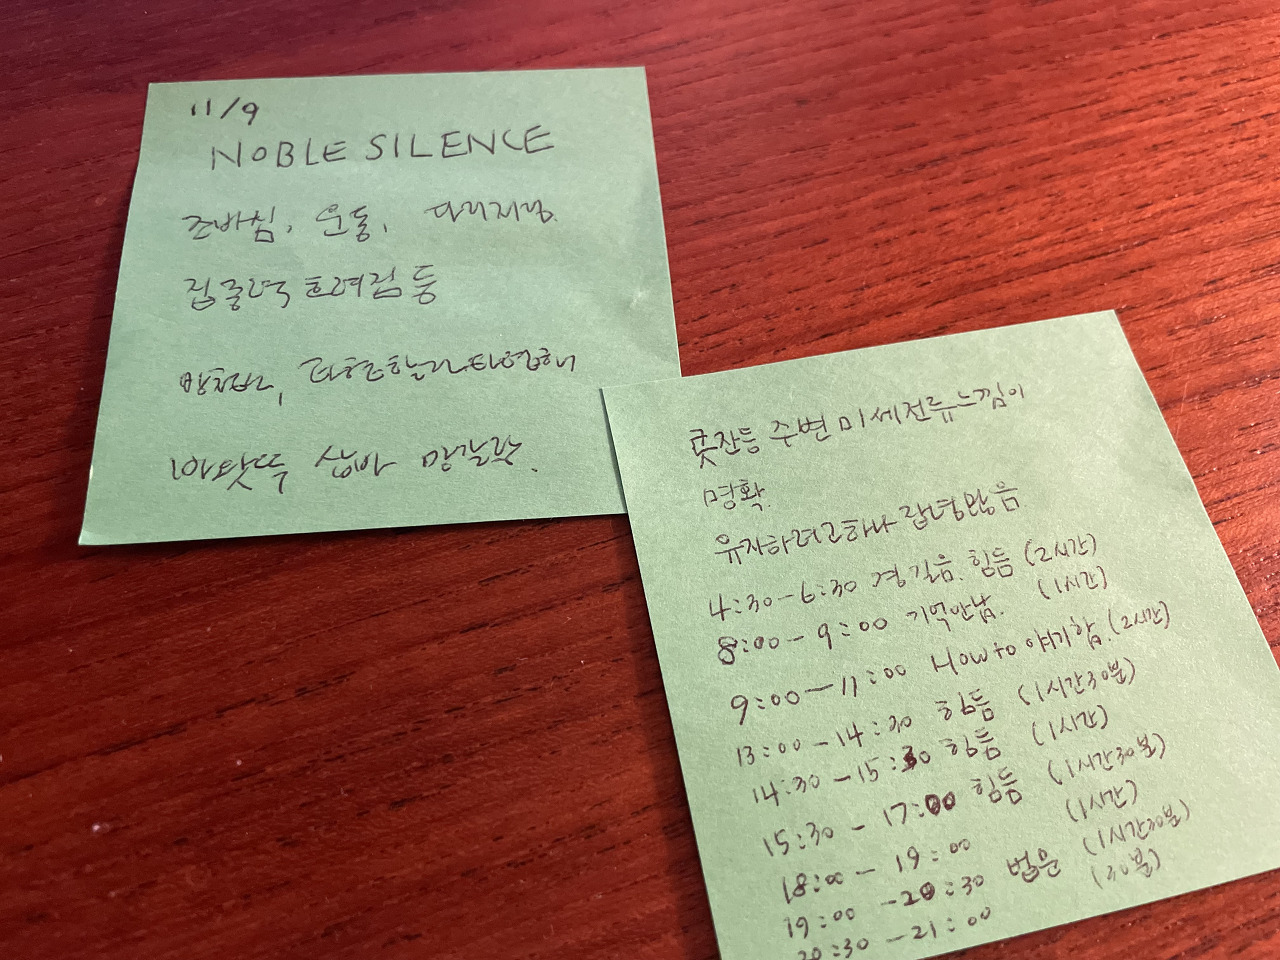 11/9
NOBLE SILENCE
조바심, 운동, 다리저림.
집중력 흐려짐 등
바왓뚜 삽바 망갈람.
콧잔등 주변 미세전류느낌이
명확.
유지하려고하나 잡념많음
4:30-6:30 졸음. 힘듦 (2시간)
8:00-9:00 기억안남. (1시간)
9:00-11:00 How to 얘기함. (2시간)
13:00-14:30 힘듦 (1시간30분)
14:30-15:30 힘듦 (1시간)
15:30-17:00 힘듦 (1시간30분)
18:00-19:00 (1시간)
19:00-20:30 법문 (1시간30분)
20:30-21:00 (30분)